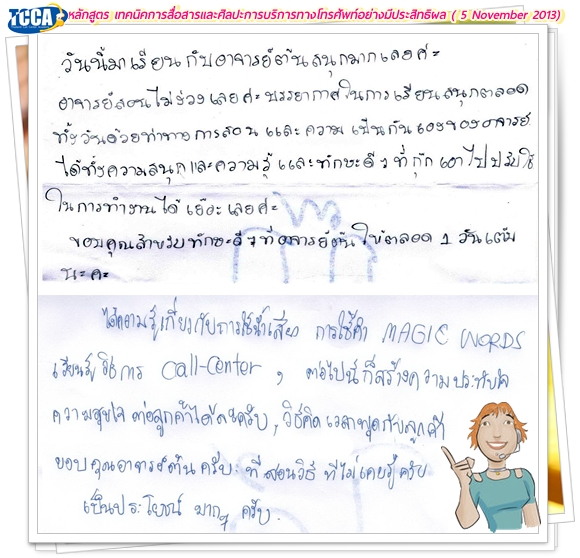 TCCA หลักสูตร เทคนิคการสื่อสารและศิลปะการบริการทางโทรศัพท์อย่างมีประสิทธิผล ( 5 November 2013)
วันนี้มาเรียนกับอาจารย์ต้นสนุกมากเลยค่ะ
อาจารย์สอนไม่ง่วงเลยค่ะ บรรยากาศในการเรียนสนุกตลอด
ทั้งวันด้วยท่าทางการสอน และความเป็นกันเองของอาจารย์
ได้ทั้งความสนุกและความรู้ และทักษะดีๆ ที่กุ๊ก เอาไปปรับใช้
ในการทำงานได้เยอะเลยค่ะ
ขอบคุณสำหรับทักษะดีๆ ที่อาจารย์ต้นให้ตลอด 1 วันเต็ม
นะคะ
ได้ความรู้เกี่ยวกับการใช้น้ำเสียง การใช้คำ MAGIC WORDS
เรียนรู้วิธีการ Call-Center , ต่อไปนี้ก็สร้างความประทับใจ
ความสุขใจ ต่อลูกค้าได้ครับ, วิธีคิด เวลาพูดกับลูกค้า
ขอบคุณอาจารย์ต้นครับ ที่สอนวิธี ที่ไม่เคยรู้ครับ
เป็นประโยชน์ มากๆ ครับ.